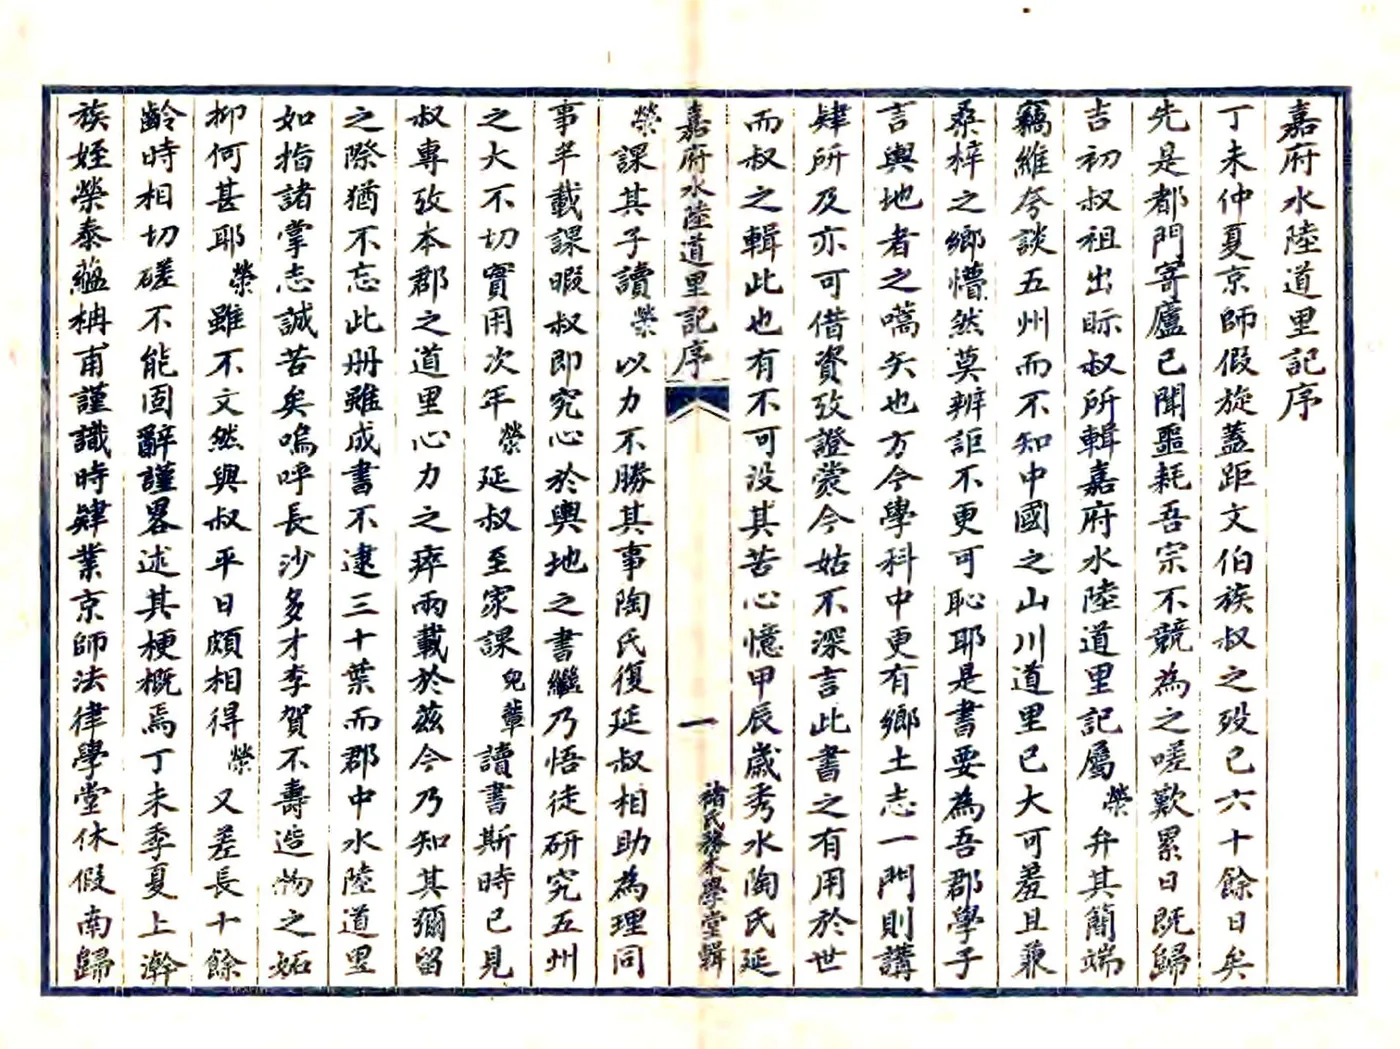 嘉府水陸道里記序
丁未仲夏京師假旋蓋距文伯族叔之歿已六十餘日矣
先是都門寄廬已聞噩耗吾宗不競為之嗟歎累日既歸
吉初叔祖出眎叔所輯嘉府水陸道里記屬榮弁其簡端
竊維夸談五州而不知中國之山川道里已大可羞且兼
桑梓之鄉懵然莫辨詎不更可恥耶是書要為吾郡學子
言輿地者之嚆矢也方今學科中更有鄉土志一門則講
肄所及亦可借資攷證裳今姑不深言此書之有用於世
而叔之輯此也有不可没其苦心憶甲辰歲秀水陶氏延
嘉府水陸道里記序
一
褚氏務本學堂輯
榮課其子讀榮以力不勝其事陶氏復延叔相助為理同
事半載課暇叔即究心於輿地之書繼乃悟徒研究五州
之大不切實用次年榮延叔至家課兒輩讀書斯時已見
叔專攷本郡之道里心力之瘁兩載於茲今乃知其彌留
之際猶不忘此册雖成書不逮三十葉而郡中水陸道里
如指諸掌志誠苦矣嗚呼長沙多才李賀不壽造物之妬
抑何甚耶榮雖不文然與叔平日頗相得榮又差長十餘
齡時相切磋不能固辭謹畧述其梗概焉丁未季夏上澣
族姪榮泰蘊枬甫謹識時肄業京師法律學堂休假南歸